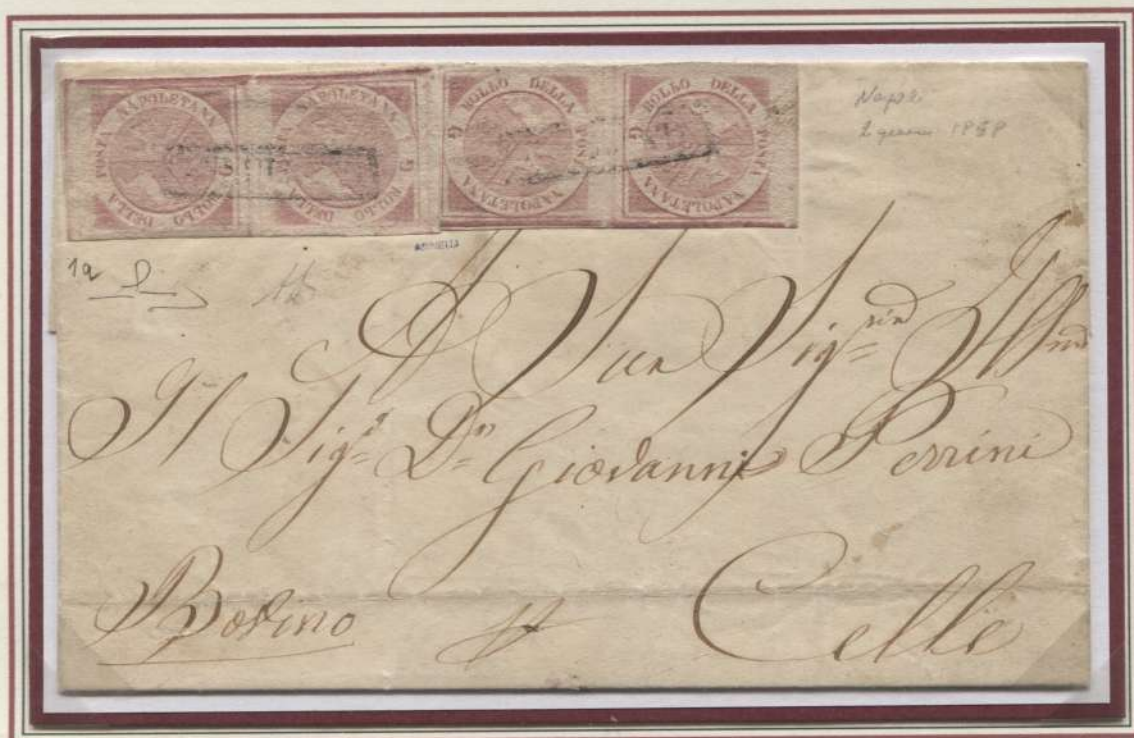 POSTA NAPOLETANA G BOLLO DELLA
POSTA NAPOLETANA G BOLLO DELLA
G BOLLO DELLA POSTA NAPOLETANA
G BOLLO DELLA POSTA NAPOLETANA
Napoli
1858
1a
A Sua Sig.ria Ill.ma
Il Sig.r D.n Giovanni Perrini
Bovino
Celle